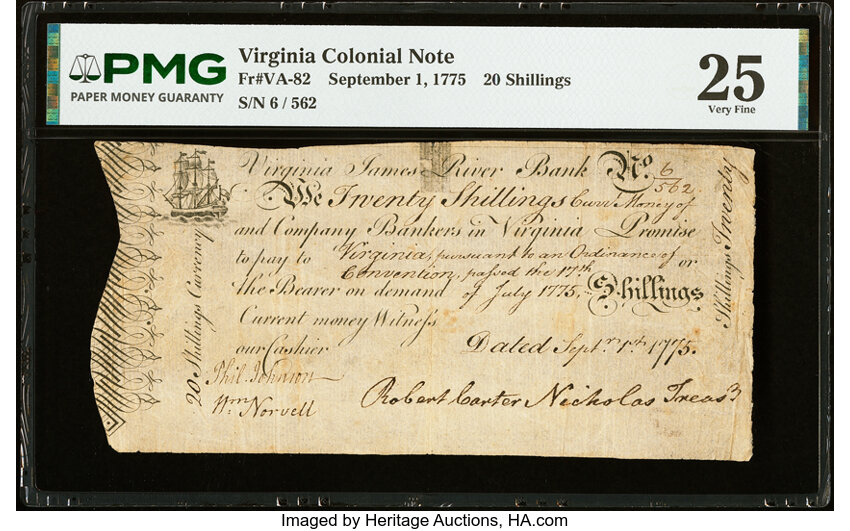 PMG
PAPER MONEY GUARANTY
Virginia Colonial Note
Fr#VA-82 September 1, 1775 20 Shillings
S/N 6 / 562
25
Very Fine
Virginia James River Bank No. 6/562
We Twenty Shillings Curr. Money of
and Company Bankers in Virginia Promise
to pay to Virginia, pursuant to an Ordinance of
Convention, passed the 17th or
the Bearer on demand of July 1775, Shillings
Current money Witness
our Cashier
Dated Sept.r 1st 1775.
Phil. Johnson
Wm Norvell
Robert Carter Nicholas Treas.r
20 Shillings Currency
Shillings Twenty
Imaged by Heritage Auctions, HA.com